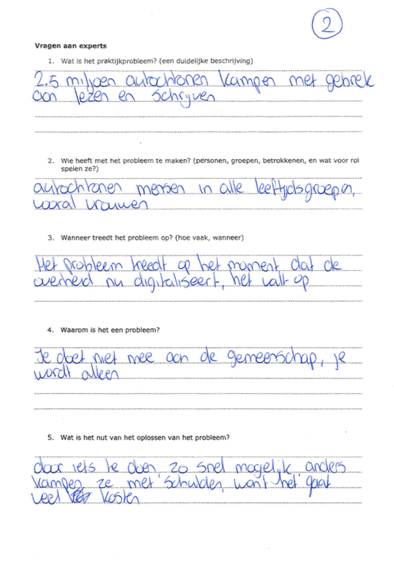 2
Vragen aan experts
1. Wat is het praktijkprobleem? (een duidelijke beschrijving)
2.5 miljoen autochtonen kampen met gebrek
aan lezen en schrijven
2. Wie heeft met het probleem te maken? (personen, groepen, betrokkenen, en wat voor rol
spelen ze?)
autochtonen mensen in alle leeftijdsgroepen,
vooral vrouwen
3. Wanneer treedt het probleem op? (hoe vaak, wanneer)
Het probleem treedt op het moment dat de
overheid nu digitaliseert, het valt op
4. Waarom is het een probleem?
Je doet niet mee aan de gemeenschap, je
wordt alleen
5. Wat is het nut van het oplossen van het probleem?
door iets te doen zo snel mogelijk anders
kampen ze met schulden, want het gaat
veel kosten